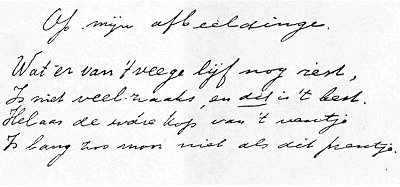 Op mijn afbeeldinge.
Wat er van 't veege lijf nog rest,
Is niet veel zaaks, en dit is 't best.
Helaas de ware kop van 't ventje
Is lang zoo mooi niet als dit prentje.